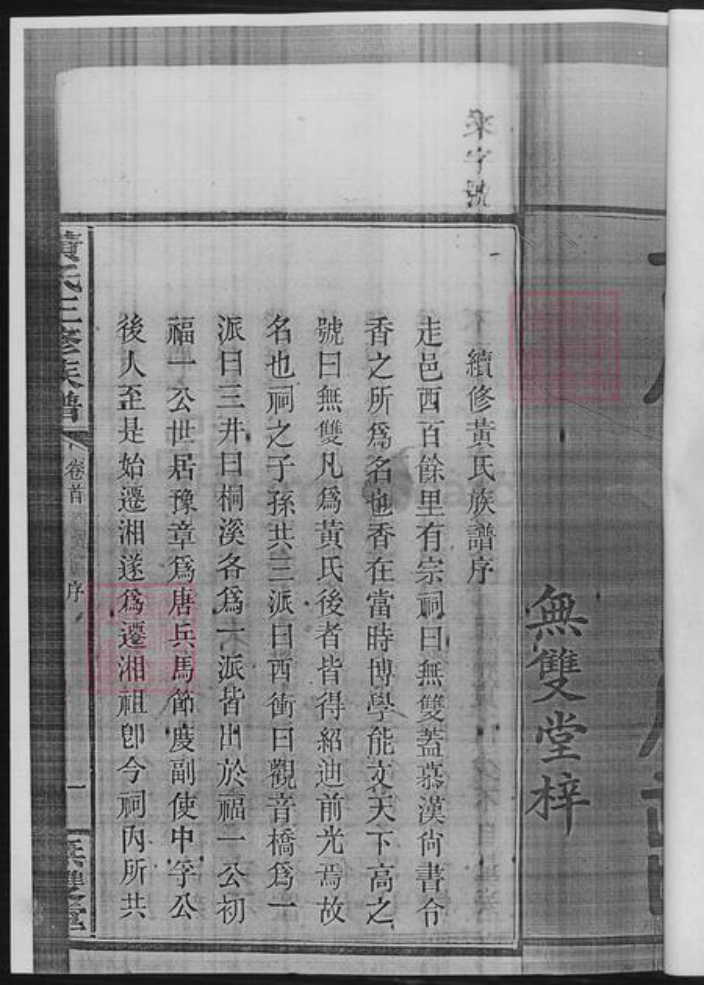 無雙堂梓
來字號
續修黃氏族譜序
走邑西百餘里有宗祠曰無雙蓋慕漢尙書令
香之所爲名也香在當時博學能文天下高之
號曰無雙凡爲黃氏後者皆得紹迪前光焉故
名也祠之子孫共三派曰西衝曰觀音橋爲一
派曰三井曰桐溪各爲一派皆出於福一公初
福一公世居豫章爲唐兵馬節度副使中孚公
後人至是始遷湘遂爲遷湘祖卽今祠內所共
黃氏三修族譜
卷首
序
一
無雙堂